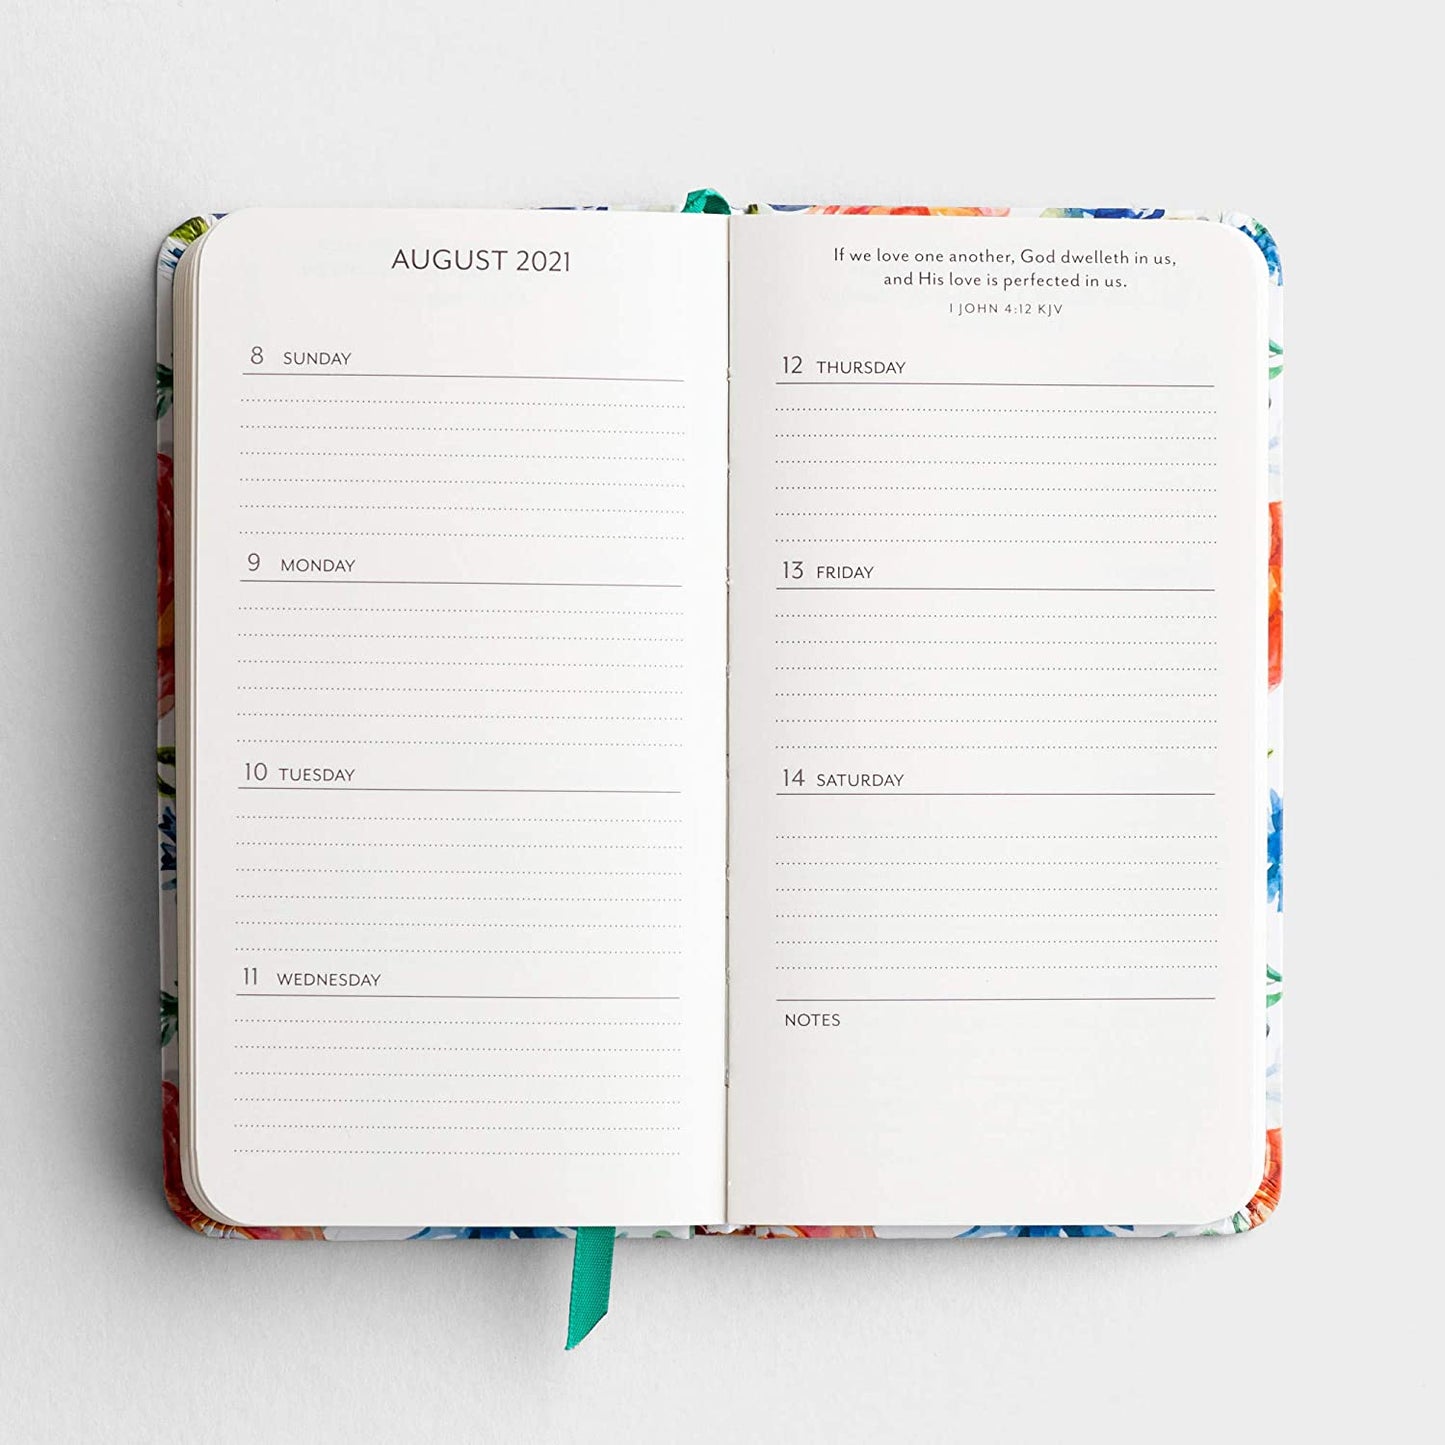 AUGUST 2021
8 SUNDAY
9 MONDAY
10 TUESDAY
11 WEDNESDAY
If we love one another, God dwelleth in us,
and His love is perfected in us.
I JOHN 4:12 KJV
12 THURSDAY
13 FRIDAY
14 SATURDAY
NOTES